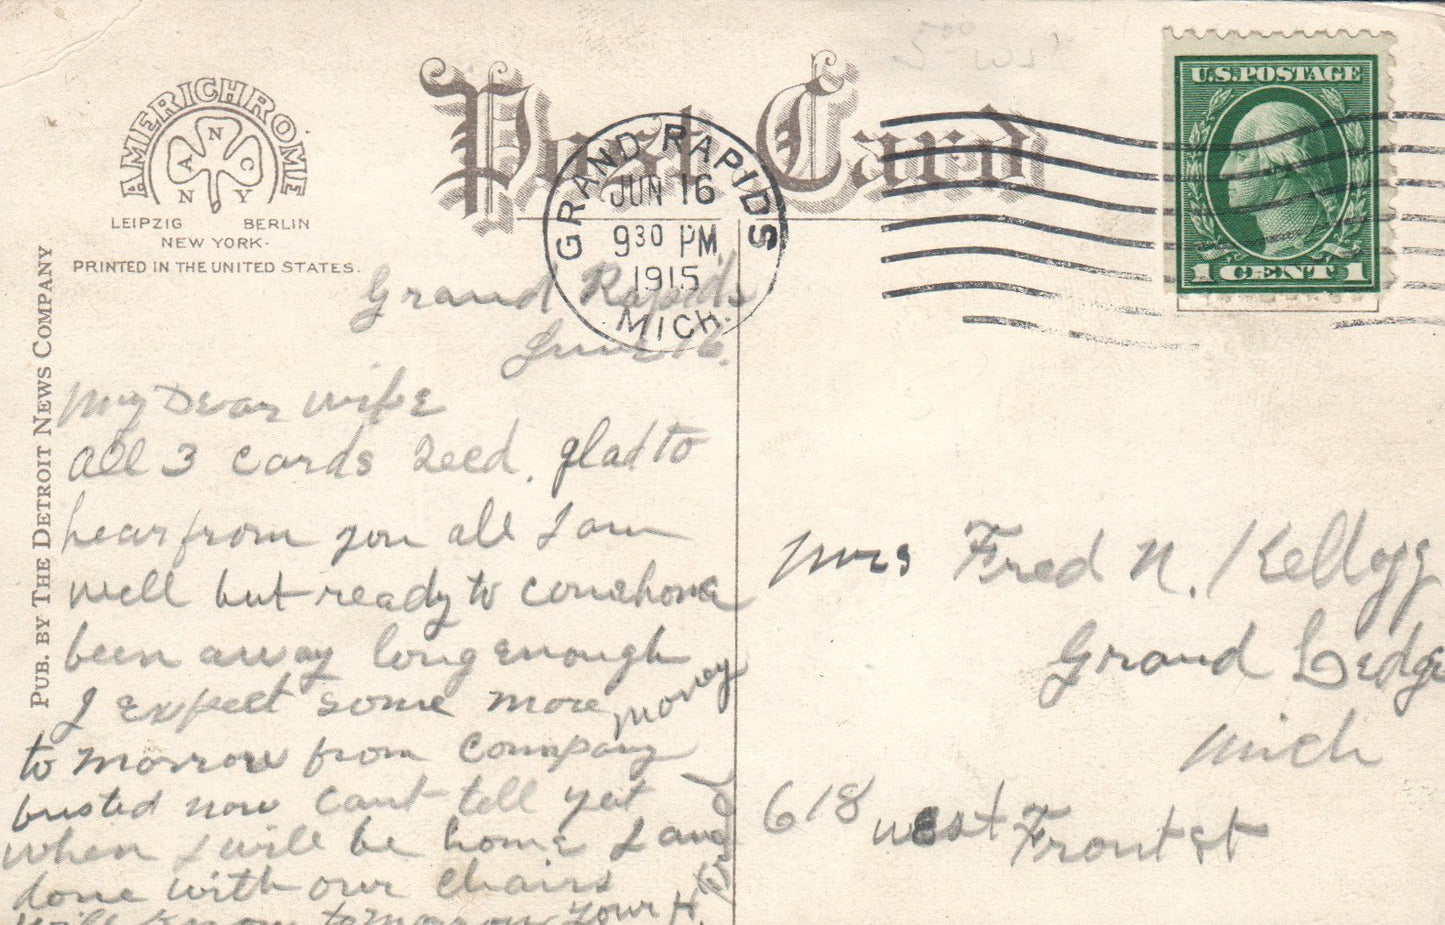 Post Card
AMERICHROME
A N C N Y
LEIPZIG BERLIN
NEW YORK.
PRINTED IN THE UNITED STATES.
PUB. BY THE DETROIT NEWS COMPANY
GRAND RAPIDS
JUN 16
9 30 PM
1915
MICH.
U.S. POSTAGE
1 CENT 1
Grand Rapids
June 16.
My Dear wife
all 3 cards Recd. glad to
hear from you all I am
well but ready to come home
been away long enough
I expect some more money
to morrow from company
busted now cant tell yet
when I will be home I and
done with our chairs
will know tomorrow your H.
Fred
Mrs Fred N. Kellogg
Grand Ledge
Mich
618 west Front st